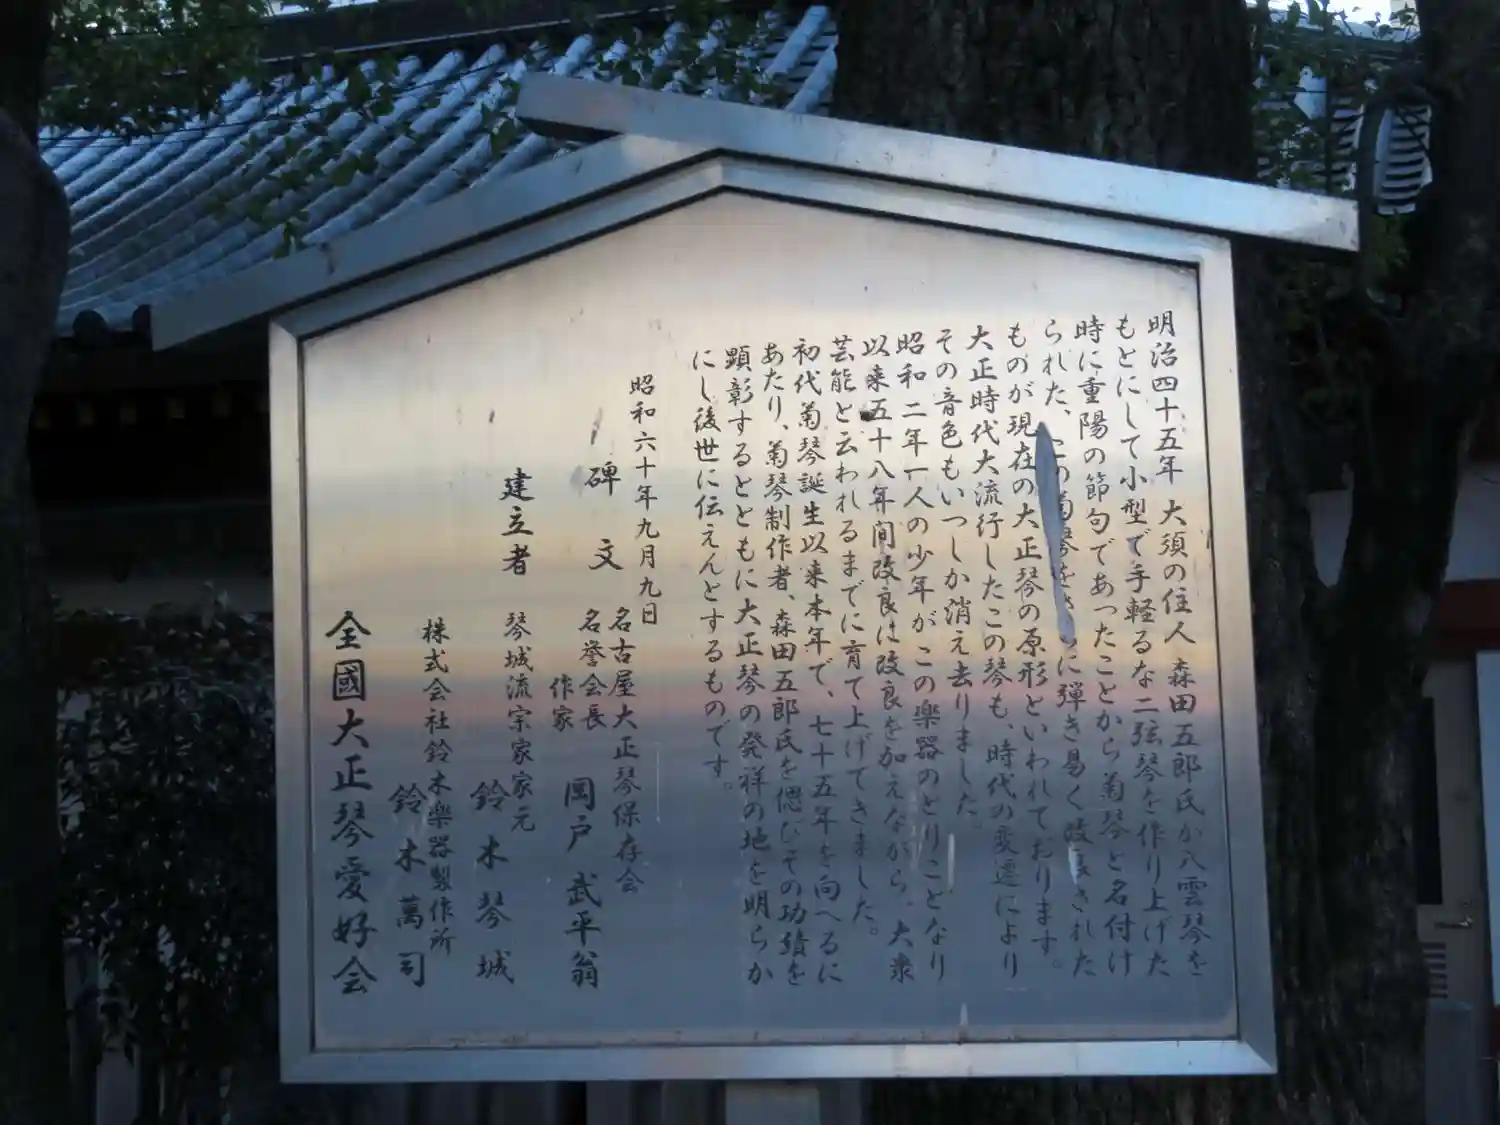 明治四十五年 大須の住人 森田五郎氏が八雲琴を
もとにして小型で手軽るな二弦琴を作り上げた
時に重陽の節句であったことから菊琴と名付け
られた、この菊琴をさらに弾き易く改良された
ものが現在の大正琴の原形といわれております。
大正時代大流行したこの琴も、時代の変遷により
その音色もいつしか消え去りました。
昭和二年一人の少年がこの楽器のとりことなり
以来五十八年間改良に改良を加えながら、大衆
芸能と云われるまでに育て上げてきました。
初代菊琴誕生以来本年で、七十五年を向へるに
あたり、菊琴制作者、森田五郎氏を偲びその功績を
顕彰するとともに大正琴の発祥の地を明らか
にし後世に伝えんとするものです。
昭和六十年九月九日
碑文
名古屋大正琴保存会
名誉会長
作家
岡戸武平翁
建立者
琴城流宗家家元
鈴木琴城
株式会社鈴木楽器製作所
鈴木萬司
全國大正琴愛好会